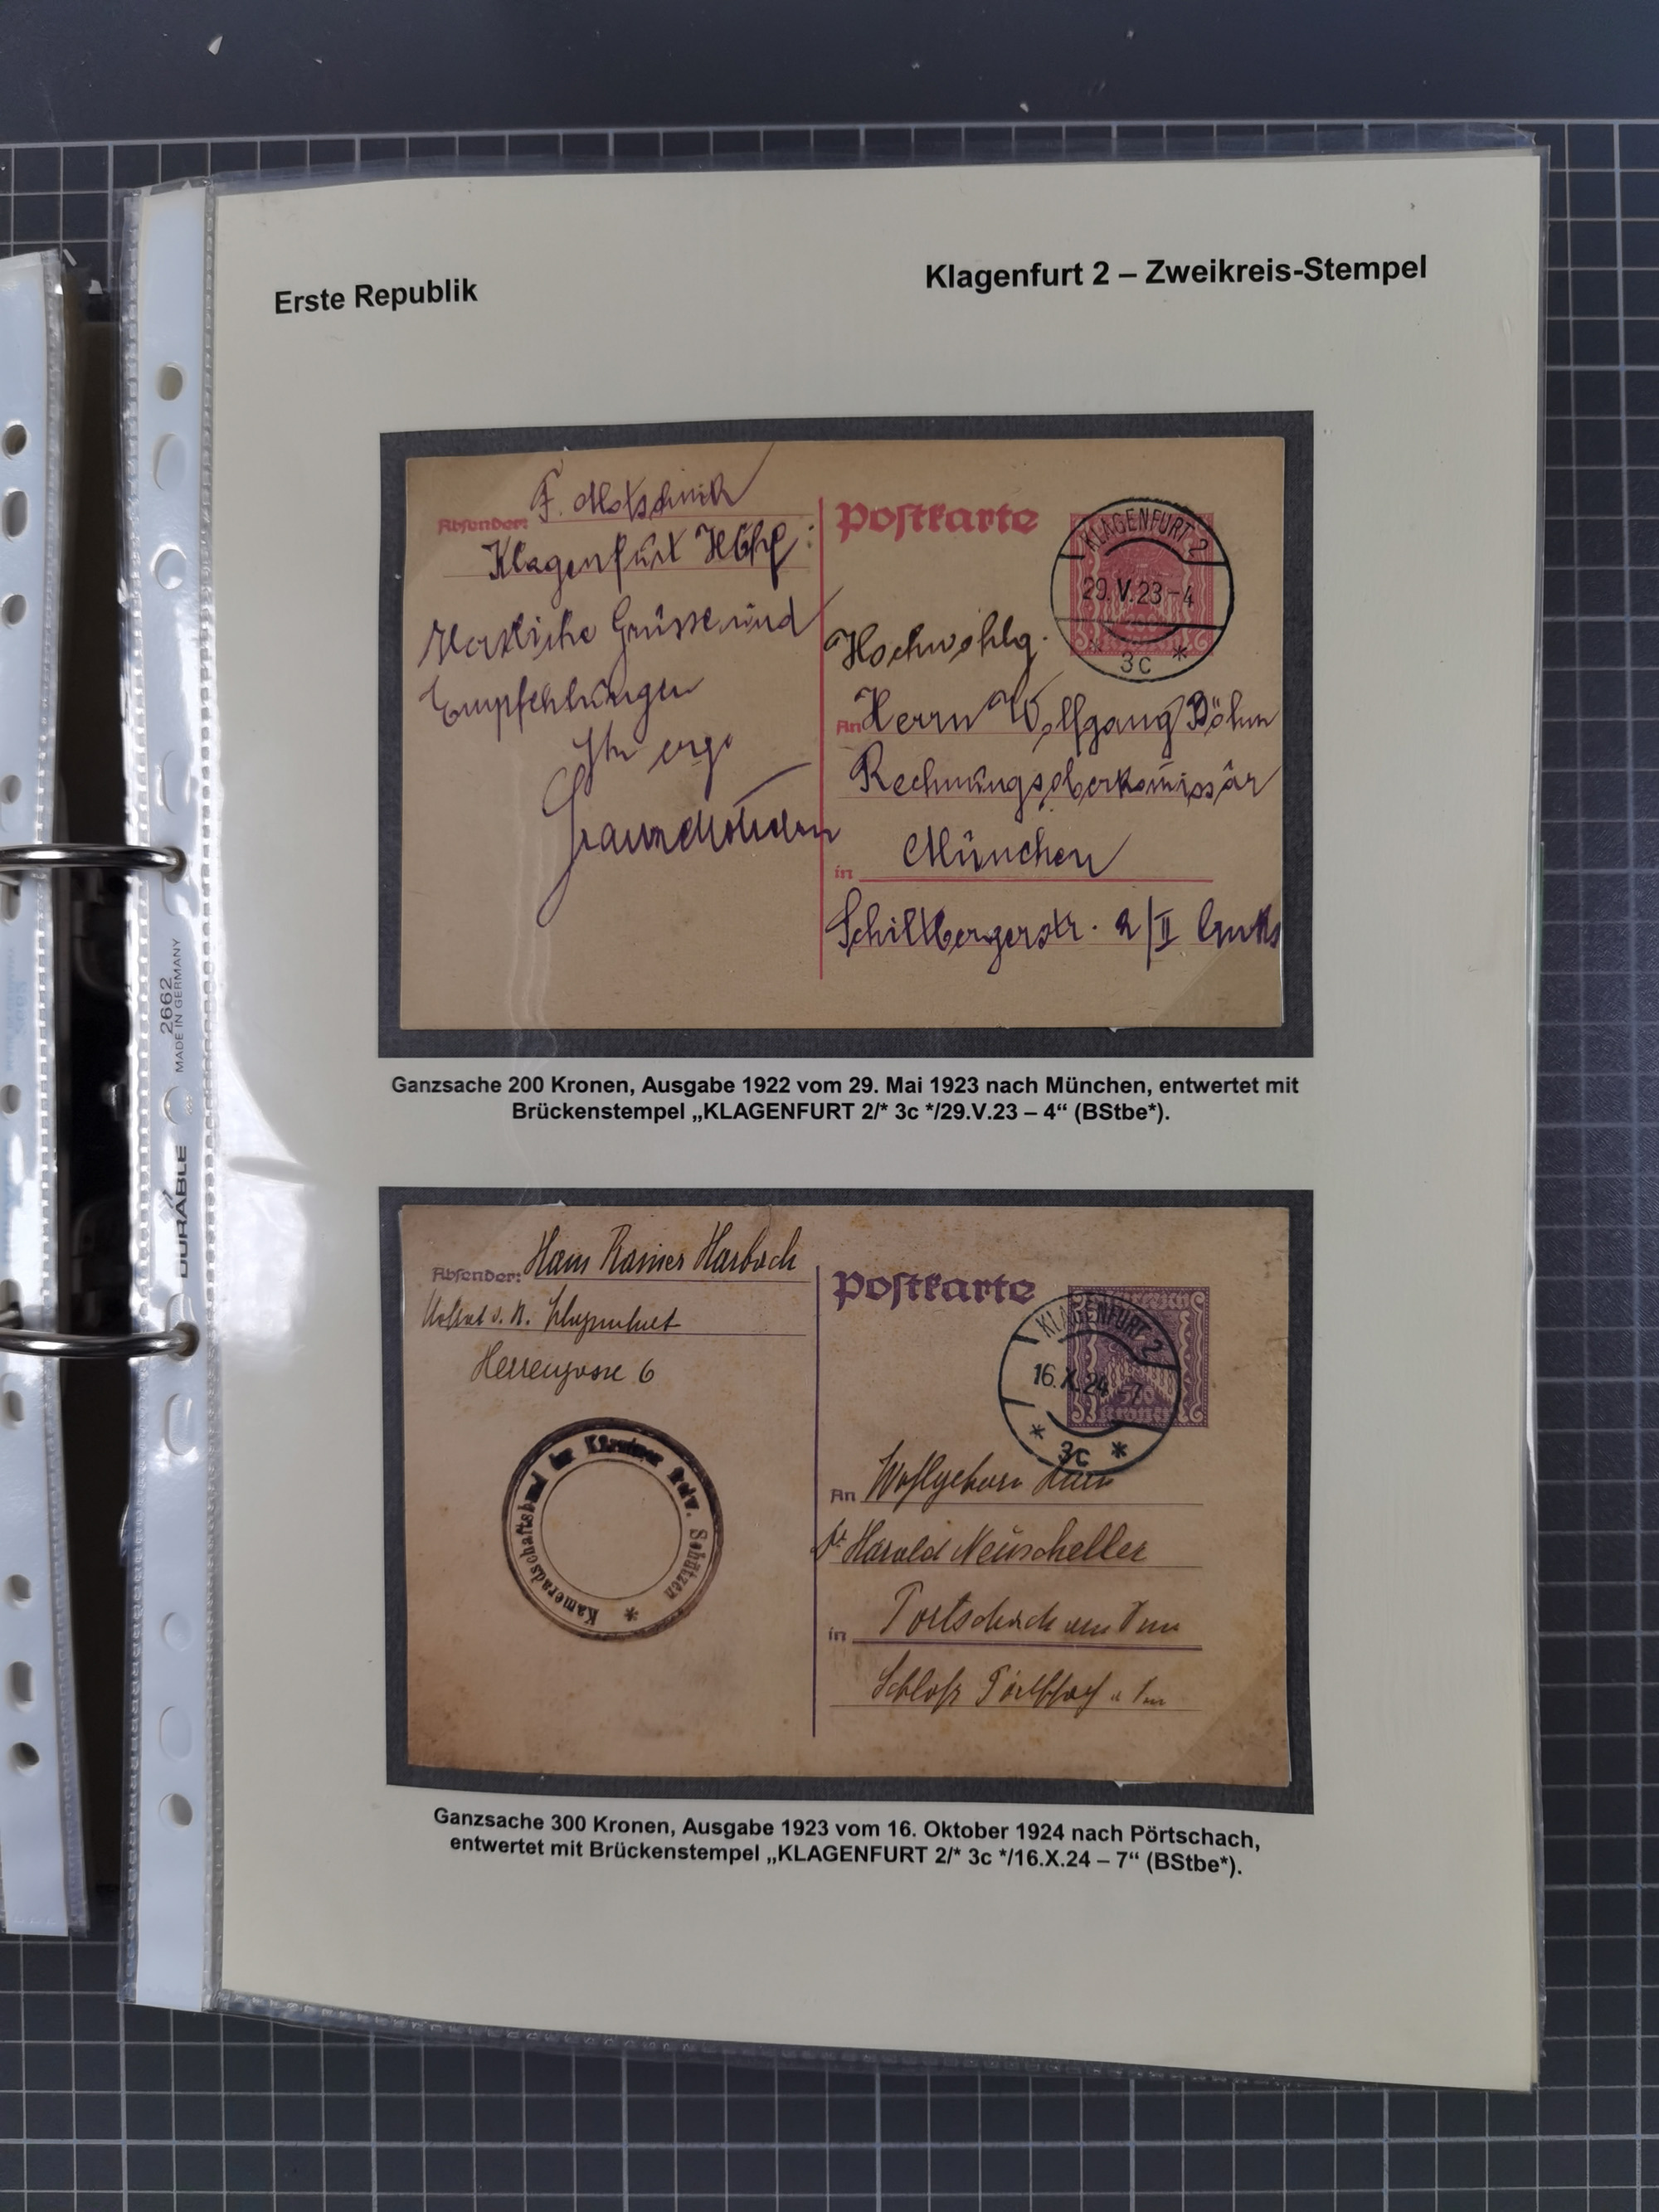 Erste Republik
Klagenfurt 2 – Zweikreis-Stempel
Absender:
Klagenfurt Hbhf
Herzliche Grüsse und
Empfehlungen
Ihr erg.
Postkarte
KLAGENFURT 2
29.V.23-4
* 3c *
Hochwohlg.
An Herrn Wolfgang Böhm
Rechnungsoberkomissär
in München
Schiltbergerstr. 2/II links
2662
MADE IN GERMANY
DURABLE
Ganzsache 200 Kronen, Ausgabe 1922 vom 29. Mai 1923 nach München, entwertet mit
Brückenstempel „KLAGENFURT 2/* 3c */29.V.23 – 4“ (BStbe*).
Absender: Hans Rainer Harbach
Herrengasse 6
Kameradschaftsbund der Kärntner freiw. Schützen *
Postkarte
KLAGENFURT 2
16.X.24-7
* 3c *
Kronen
An Wohlgeboren Herrn
Dr Harald Neuscheller
in Pörtschach am See
Schloß
Ganzsache 300 Kronen, Ausgabe 1923 vom 16. Oktober 1924 nach Pörtschach,
entwertet mit Brückenstempel „KLAGENFURT 2/* 3c */16.X.24 – 7“ (BStbe*).